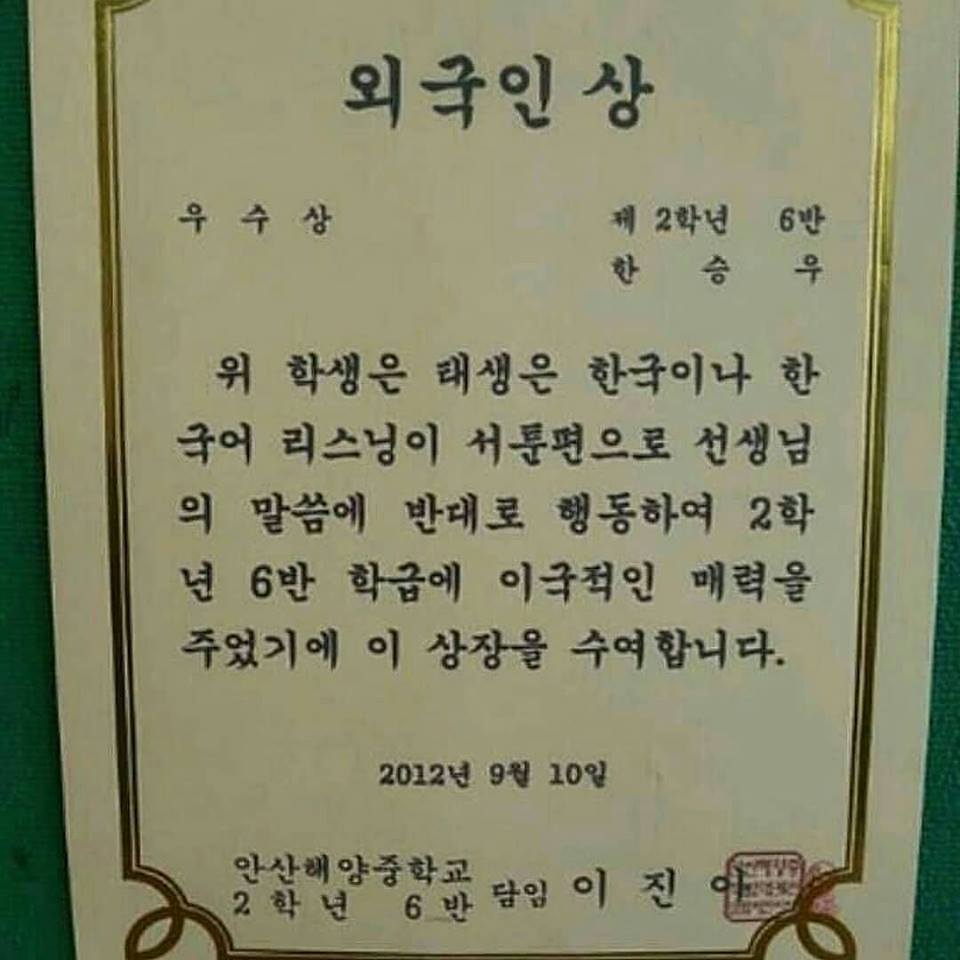 외국인 상
우 수 상 제 2학년 6반
한 승 우
위 학생은 태생은 한국이나 한
국어 리스닝이 서툰편으로 선생님
의 말씀에 반대로 행동하여 2학
년 6반 학급에 이국적인 매력을
주었기에 이 상장을 수여합니다.
2012년 9월 10일
안산해양중학교
2 학 년 6 반 담임 이 진